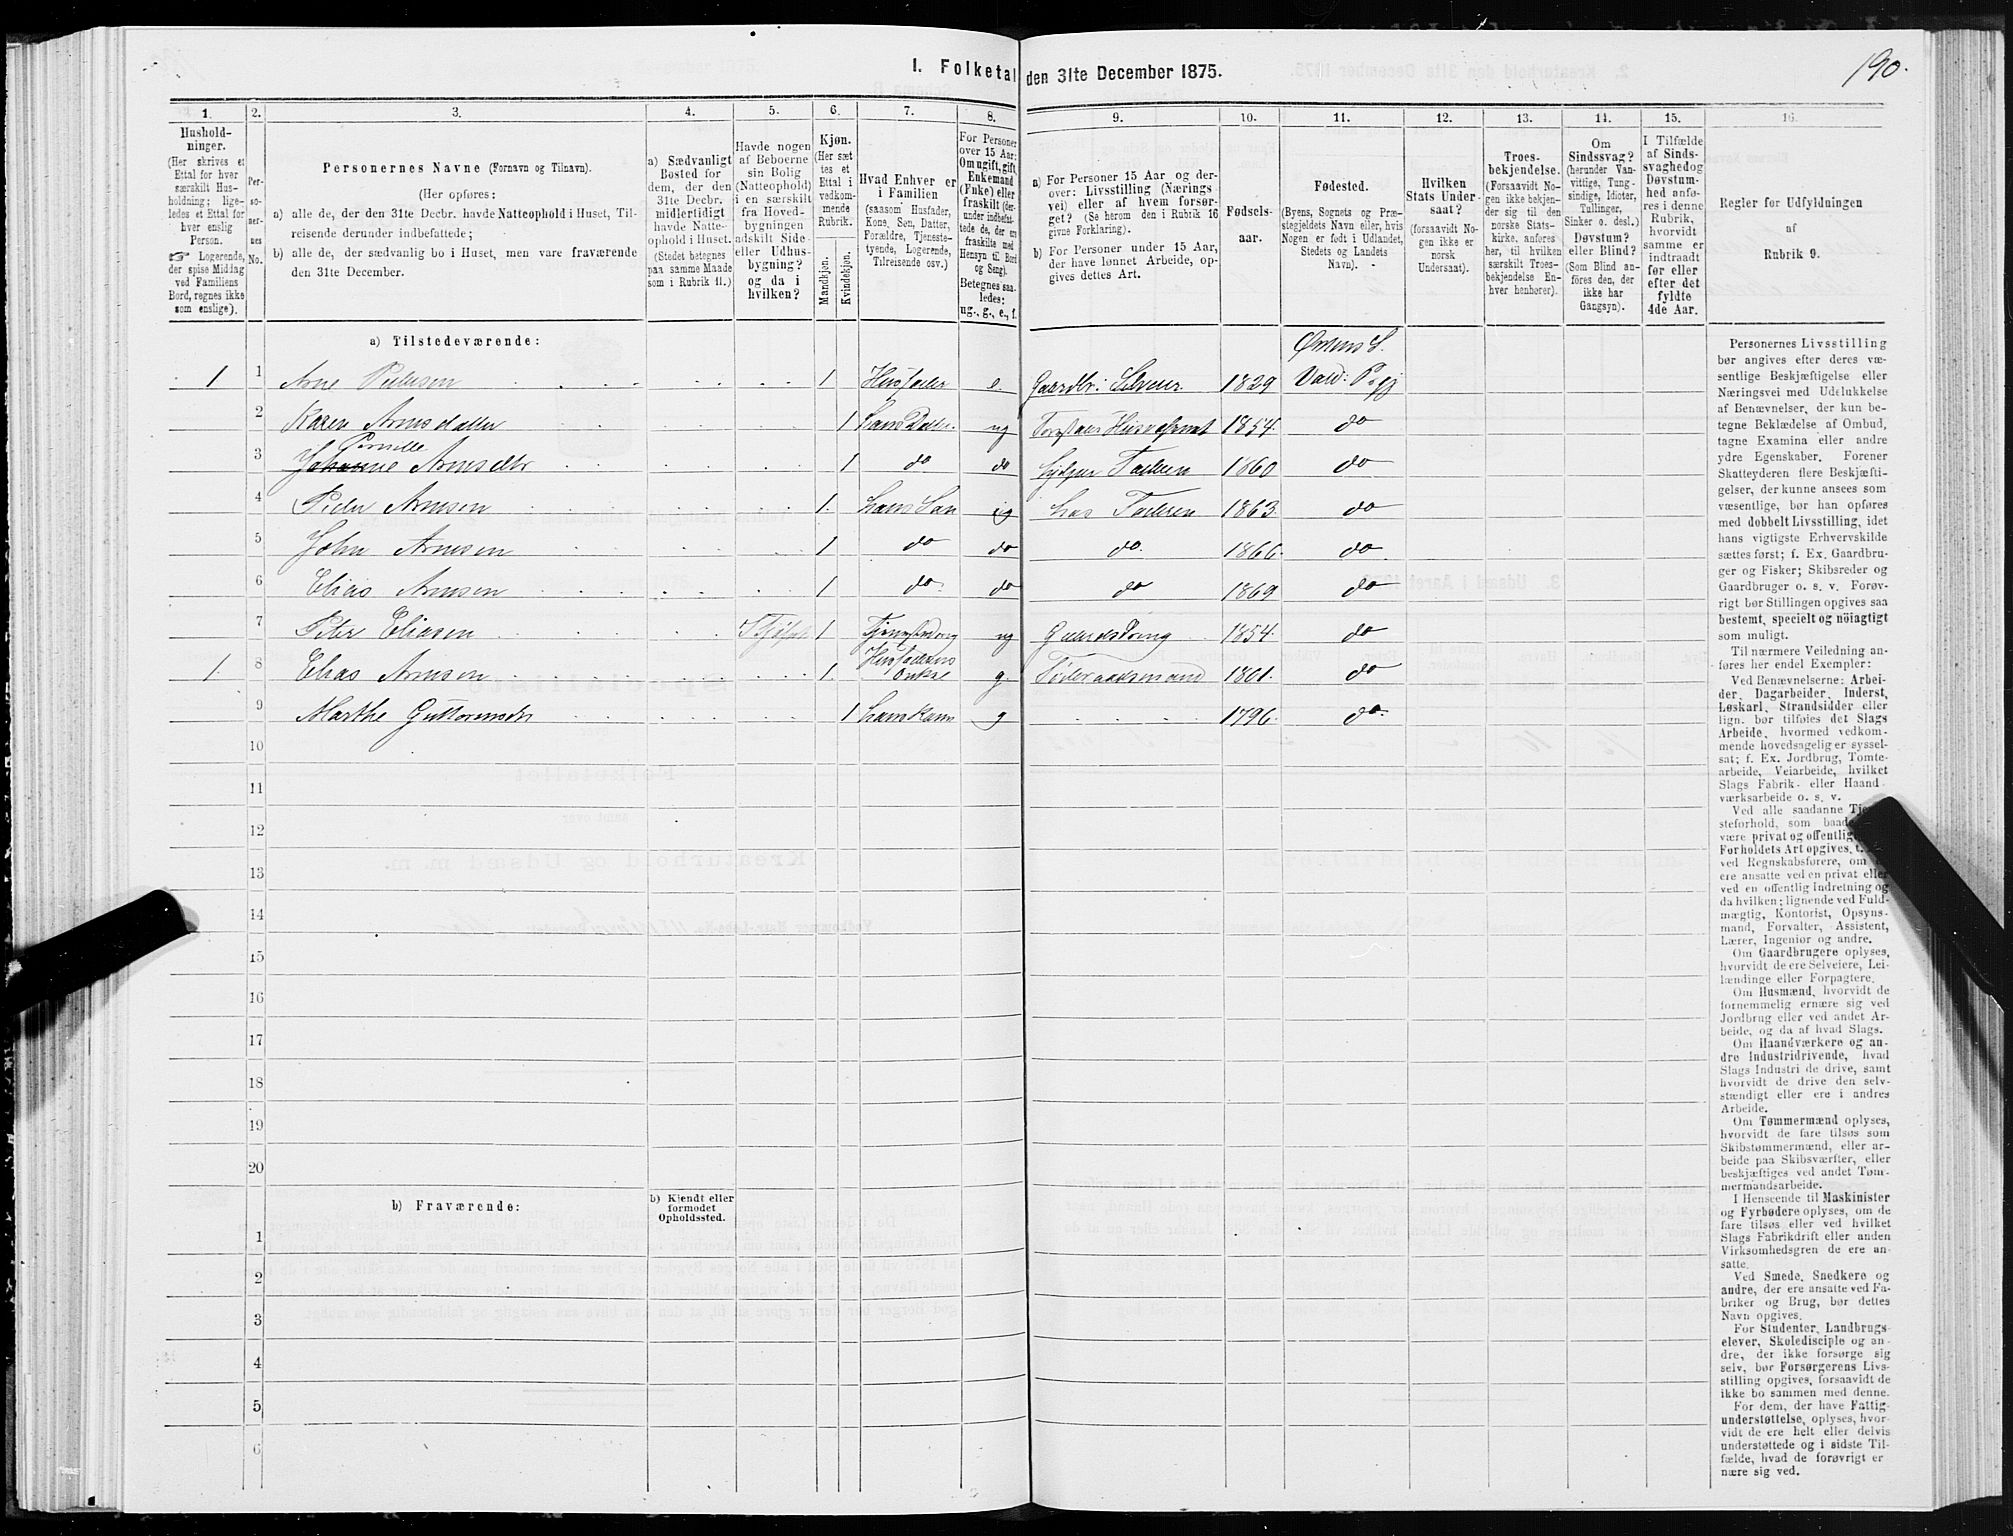 190.
I. Folketal den 31te December 1875.
1. 2. 3. 4. 5. 6. 7. 8. 9. 10. 11. 12. 13. 14. 15. 16.
Hushold-
ninger.
(Her skrives et
Ettal for hver
særskilt Hus-
holdning; lige-
ledes et Ettal for
hver enslig
Person.
☞ Logerende,
der spise Middag
ved Familiens
Bord, regnes ikke
som enslige).
Per-
so-
ner-
nes
No.
Personernes Navne (Fornavn og Tilnavn).
(Her opføres:
a) alle de, der den 31te Decbr. havde Natteophold i Huset, Til-
reisende derunder indbefattede;
b) alle de, der sædvanlig bo i Huset, men vare fraværende
den 31te December.
a) Sædvanligt
Bosted for
dem, der den
31te Decbr.
midlertidigt
havde Natte-
ophold i Huset.
(Stedet betegnes
paa samme Maade
som i Rubrik 11.)
Havde nogen
af Beboerne
sin Bolig
(Natteophold)
i en særskilt
fra Hoved-
bygningen
adskilt Side-
eller Udhus-
bygning?
og da i
hvilken?
Kjøn.
(Her sæt-
tes et
Ettal i
vedkom-
mende
Rubrik.
Mandkjøn.
Kvindekjøn.
Hvad Enhver er
i Familien
(saasom Husfader,
Kone, Søn, Datter,
Forældre, Tjeneste-
tyende, Logerende,
Tilreisende osv.)
For Personer
over 15 Aar:
Om ugift, gift,
Enkemand
(Enke) eller
fraskilt (der-
under indbefat-
tede de, der ere
fraskilte med
Hensyn til Bord
og Seng).
Betegnes saa-
ledes:
ug., g., e., f.
a) For Personer 15 Aar og der-
over: Livsstilling (Nærings-
vei) eller af hvem forsør-
get? (Se herom den i Rubrik 16
givne Forklaring).
b) For Personer under 15 Aar,
der have lønnet Arbeide, op-
gives dettes Art.
Fødsels-
aar.
Fødested.
(Byens, Sognets og Præ-
stegjeldets Navn eller, hvis
Nogen er født i Udlandet,
Stedets og Landets
Navn).
Hvilken
Stats Under-
saat?
(forsaavidt No-
gen ikke er
norsk
Undersaat).
Troes-
bekjendelse.
(Forsaavidt No-
gen ikke bekjen-
der sig til den
norske Stats-
kirke, anføres
her, til hvilken
særskilt Troes-
bekjendelse En-
hver henhører).
Om
Sindssvag?
(herunder Van-
vittige, Tung-
sindige, Idioter,
Tullinger,
Sinker o. desl.)
Døvstum?
eller Blind?
(Som Blind an-
føres den, der
ikke har
Gangsyn).
I Tilfælde
af Sinds-
svaghed og
Døvstum-
hed anfø-
res i denne
Rubrik,
hvorvidt
samme er
indtraadt
før eller
efter det
fyldte
4de Aar.
Regler for Udfyldningen
af
Rubrik 9.
a) Tilstedeværende:
1 1 Arne Pedersen 1 Husfader e. Gaardbr: Selveier 1829 Vald: Pgj
2 Karen Arnesdatter 1 hans Datter ug 1854. do
Pernille
3 Johanne Arnesdtr 1 do do hjelper Faderen 1860 do
4 Peder Arnesen 1. hans Søn ug hos Faderen 1863. do
5 John Arnesen 1 do do do. 1866. do
6 Elias Arnesen 1 do. do do 1869 do
7 Peter Eliasen 1 ug Gaardsdreng 1854. do
1. 8 Elias Arnesen 1. Husfaderens Onkel g. Føderaadsmand 1801. do
9 Marthe Guttormsdtr 1 hans Kone g 1796. do.
10
11
12
13
14
15
16
17
18
19
20
b) Fraværende:
b) Kjendt eller
formodet
Opholdssted.
1
2
3
4
5
6
Personernes Livsstilling
bør angives efter deres væ-
sentlige Beskjæftigelse eller
Næringsvei med Udelukkelse
af Benævnelser, der kun be-
tegne Beklædelse af Ombud,
tagne Examina eller andre
ydre Egenskaber. Forener
Skatteyderen flere Beskjæfti-
gelser, der kunne ansees som
væsentlige, bør han opføres
med dobbelt Livsstilling, idet
hans vigtigste Erhvervskilde
sættes først; f. Ex. Gaardbru-
ger og Fisker; Skibsreder og
Gaardbruger o. s. v. Forøv-
rigt bør Stillingen opgives saa
bestemt, specielt og nöiagtigt
som muligt.
Til nærmere Veiledning an-
føres her endel Exempler:
Ved Benævnelserne: Arbei-
der, Dagarbeider, Inderst,
Løskarl, Strandsidder eller
lign. bør tilføies det Slags
Arbeide, hvormed vedkom-
mende hovedsagelig er syssel-
sat; f. Ex. Jordbrug, Tomte-
arbeide, Veiarbeide, hvilket
Slags Fabrik- eller Haand-
værksarbeide o. s. v.
Ved alle saadanne
steforhold, som
være privat og offentlige
Forholdets Art opgives,
ved Regnskabsførere, om
ere ansatte ved en privat eller
ved en offentlig Indretning og
da hvilken; lignende ved Fuld-
mægtig, Kontorist, Opsyns-
mand, Forvalter, Assistent,
Lærer, Ingeniør og andre.
Om Gaardbrugere oplyses,
hvorvidt de ere Selveiere, Lei-
lændinge eller Forpagtere.
Om Husmænd, hvorvidt de
fornemmelig ernære sig ved
Jordbrug eller ved andet Ar-
beide, og da af hvad Slags.
Om Haandværkere og an-
dre Industridrivende, hvad
Slags Industri de drive, samt
hvorvidt de drive den selv-
stændigt eller ere i andres
Arbeide.
Om Tømmermænd oplyses,
hvorvidt de fare tilsøs som
Skibstømmermænd, eller ar-
beide paa Skibsværfter, eller
beskjæftiges ved andet Tøm-
mermandsarbeide.
I Henseende til Maskinister
og Fyrbødere oplyses, om de
fare tilsøs eller ved hvilket
Slags Fabrikdrift eller anden
Virksomhedsgren de ere an-
satte.
Ved Smede, Snedkere og
andre, der ere ansatte ved Fa-
briker og Brug, bør dettes
Navn opgives.
For Studenter, Landbrugs-
elever, Skoledisciple og an-
dre, der ikke forsørge sig
selv, bør Forsørgerens Livs-
stilling opgives, forsaavidt de
ikke bo sammen med denne.
For dem, der have Fattig-
understøttelse, oplyses, hvor-
vidt de ere helt eller delvis
understøttede og i sidste Til-
fælde, hvad de forøvrigt er-
nære sig ved.